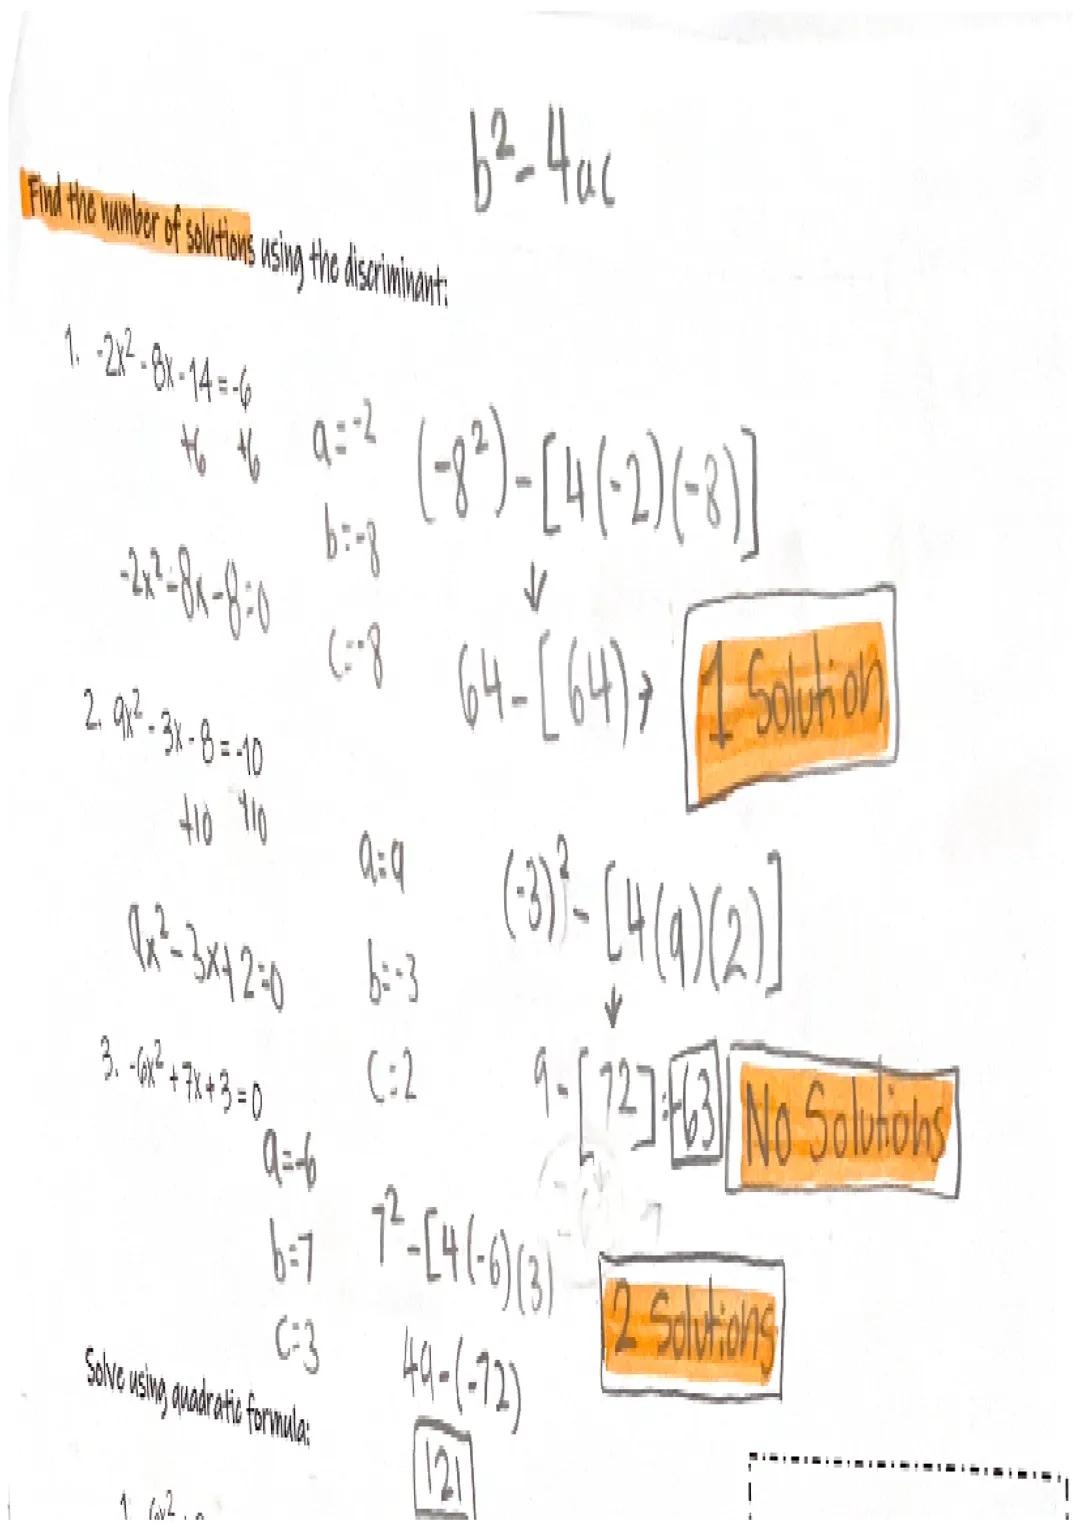 b²-4ac
Find the number of solutions using the discriminant:
1. -2x²-8x-14=-6
+6 +6
-2x²-8x-8=0
a=-2
b=-8
c=-8
(-8²)-[4(-2)(-8)]
↓
64-[64)→
1 Solution
2. 9x²-3x-8=-10
+10 +10
9x²-3x+2=0
a=9
b=-3
c=2
(-3)²-[4(9)(2)]
↓
9-[72]=-63
No Solutions
3. -6x²+7x+3=0
a=-6
b=7
c=3
7²-[4(-6)(3)
49-(-72)
121
2 Solutions
Solve using quadratic formula: